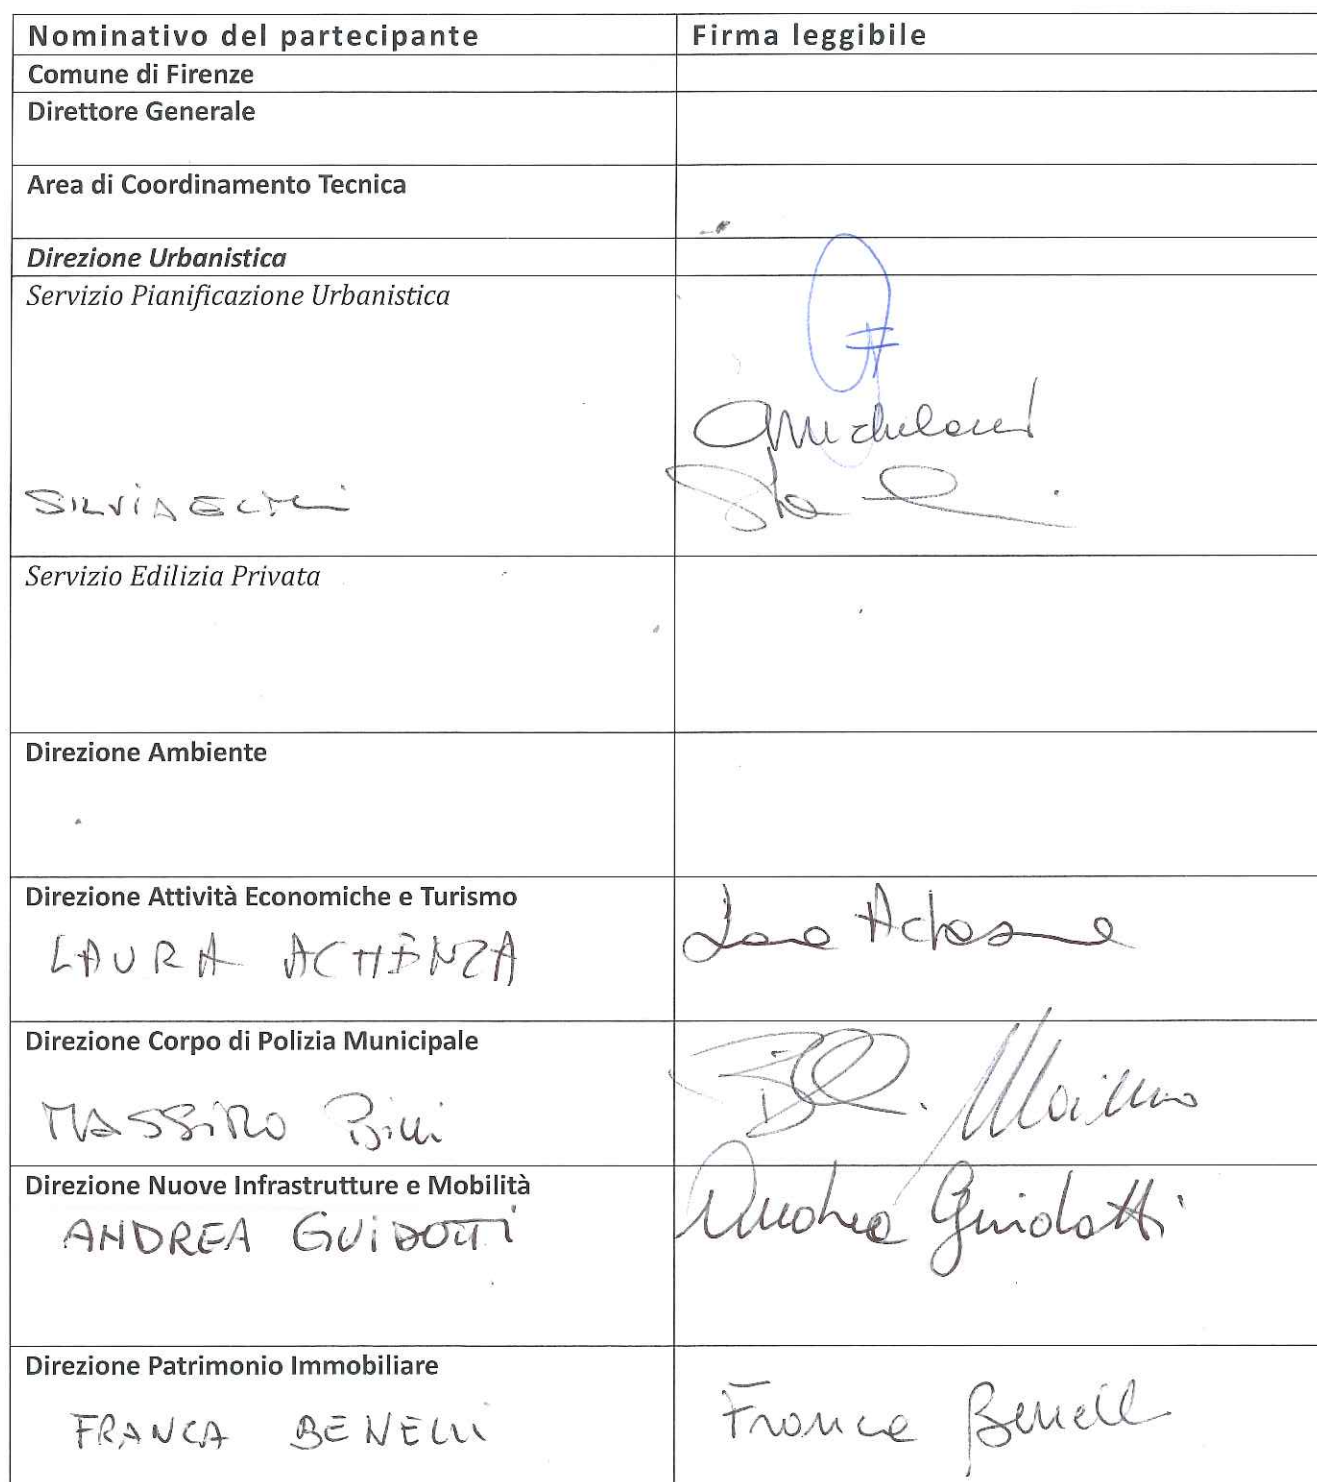 Nominativo del partecipante Firma leggibile
Comune di Firenze
Direttore Generale
Area di Coordinamento Tecnica
Direzione Urbanistica
Servizio Pianificazione Urbanistica
SILVIA
Servizio Edilizia Privata
Direzione Ambiente
Direzione Attività Economiche e Turismo
LAURA ACHENZA
Direzione Corpo di Polizia Municipale
MASSIMO Massimo
Direzione Nuove Infrastrutture e Mobilità
ANDREA GUIDOTTI Andrea Guidotti
Direzione Patrimonio Immobiliare
FRANCA BENELLI Franca Benelli